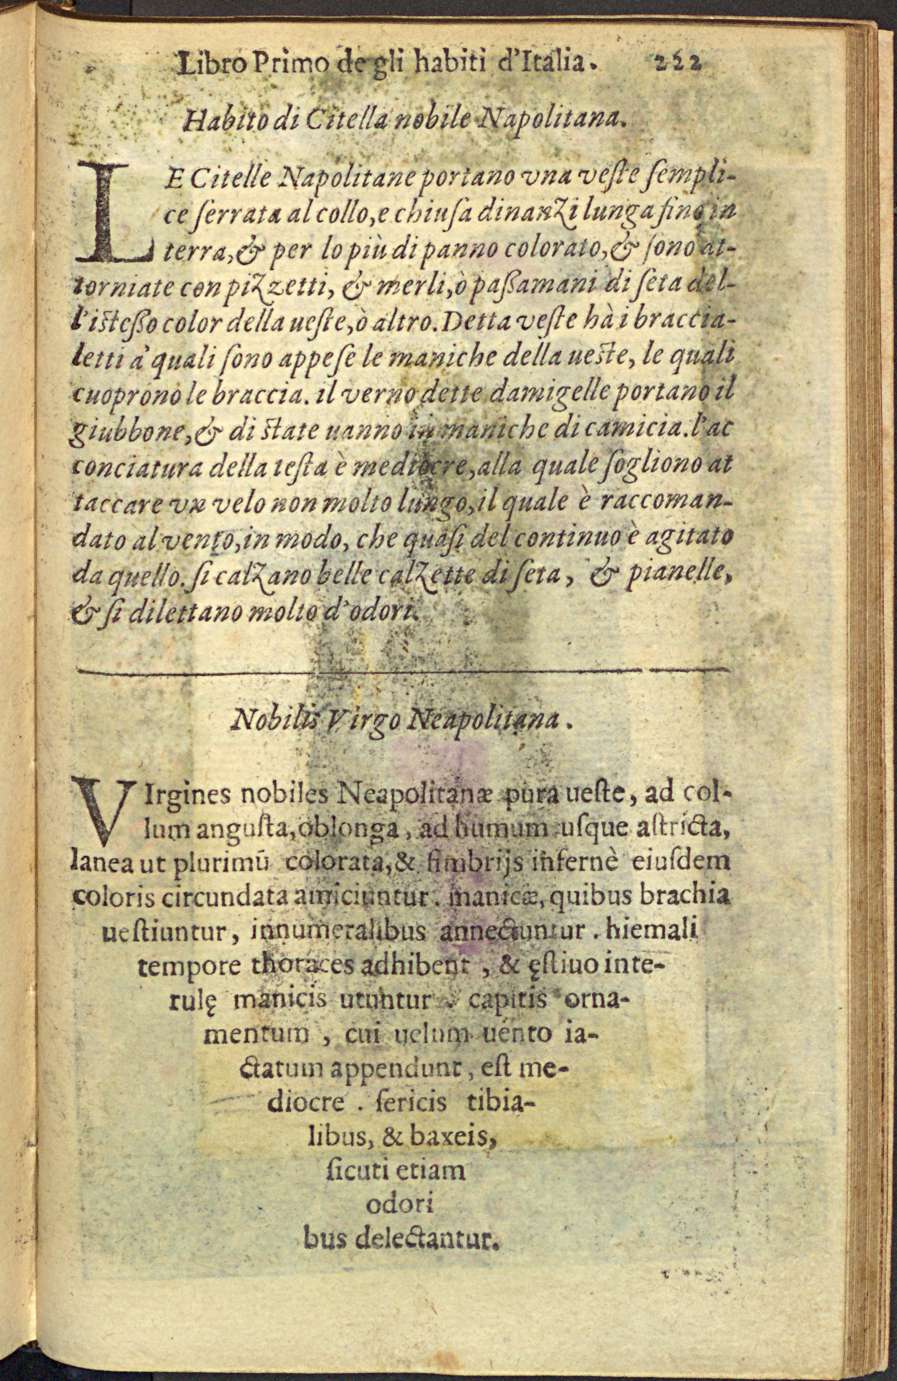 Libro Primo de gli habiti d'Italia. 222
Habito di Citella nobile Napolitana.
LE Citelle Napolitane portano vna veſte ſempli-
ce ſerrata al collo, e chiuſa dinanzi lunga fino in
terra, & per lo più di panno colorato, & ſono at-
torniate con pizzetti, & merli, ò paßamani di ſeta del-
l'iſteßo color della ueſte, ò altro. Detta veſte hà i braccia-
letti a' quali ſono appeſe le maniche della ueſte, le quali
cuoprono le braccia. il verno dette damigelle portano il
giubbone, & di ſtate uanno in maniche di camicia. l'ac
conciatura della teſta è mediocre, alla quale ſogliono at
taccare vn velo non molto lungo, il quale è raccoman-
dato al vento, in modo, che quaſi del continuo è agitato
da quello. ſi calzano belle calzette di ſeta, & pianelle,
& ſi dilettano molto d'odori.
Nobilis Virgo Neapolitana.
VIrgines nobiles Neapolitanæ pura ueſte, ad col-
lum anguſta, oblonga, ad humum uſque aſtricta,
lanea ut plurimū colorata, & fimbrijs infernè eiuſdem
coloris circundata amiciuntur. manicæ, quibus brachia
ueſtiuntur, innumeralibus annectuntur. hiemali
tempore thoraces adhibent, & ęſtiuo inte-
rulę manicis utuntur. capitis orna-
mentum, cui uelum uento ia-
ctatum appendunt, eſt me-
diocre. ſericis tibia-
libus, & baxeis,
ſicuti etiam
odori
bus delectantur.